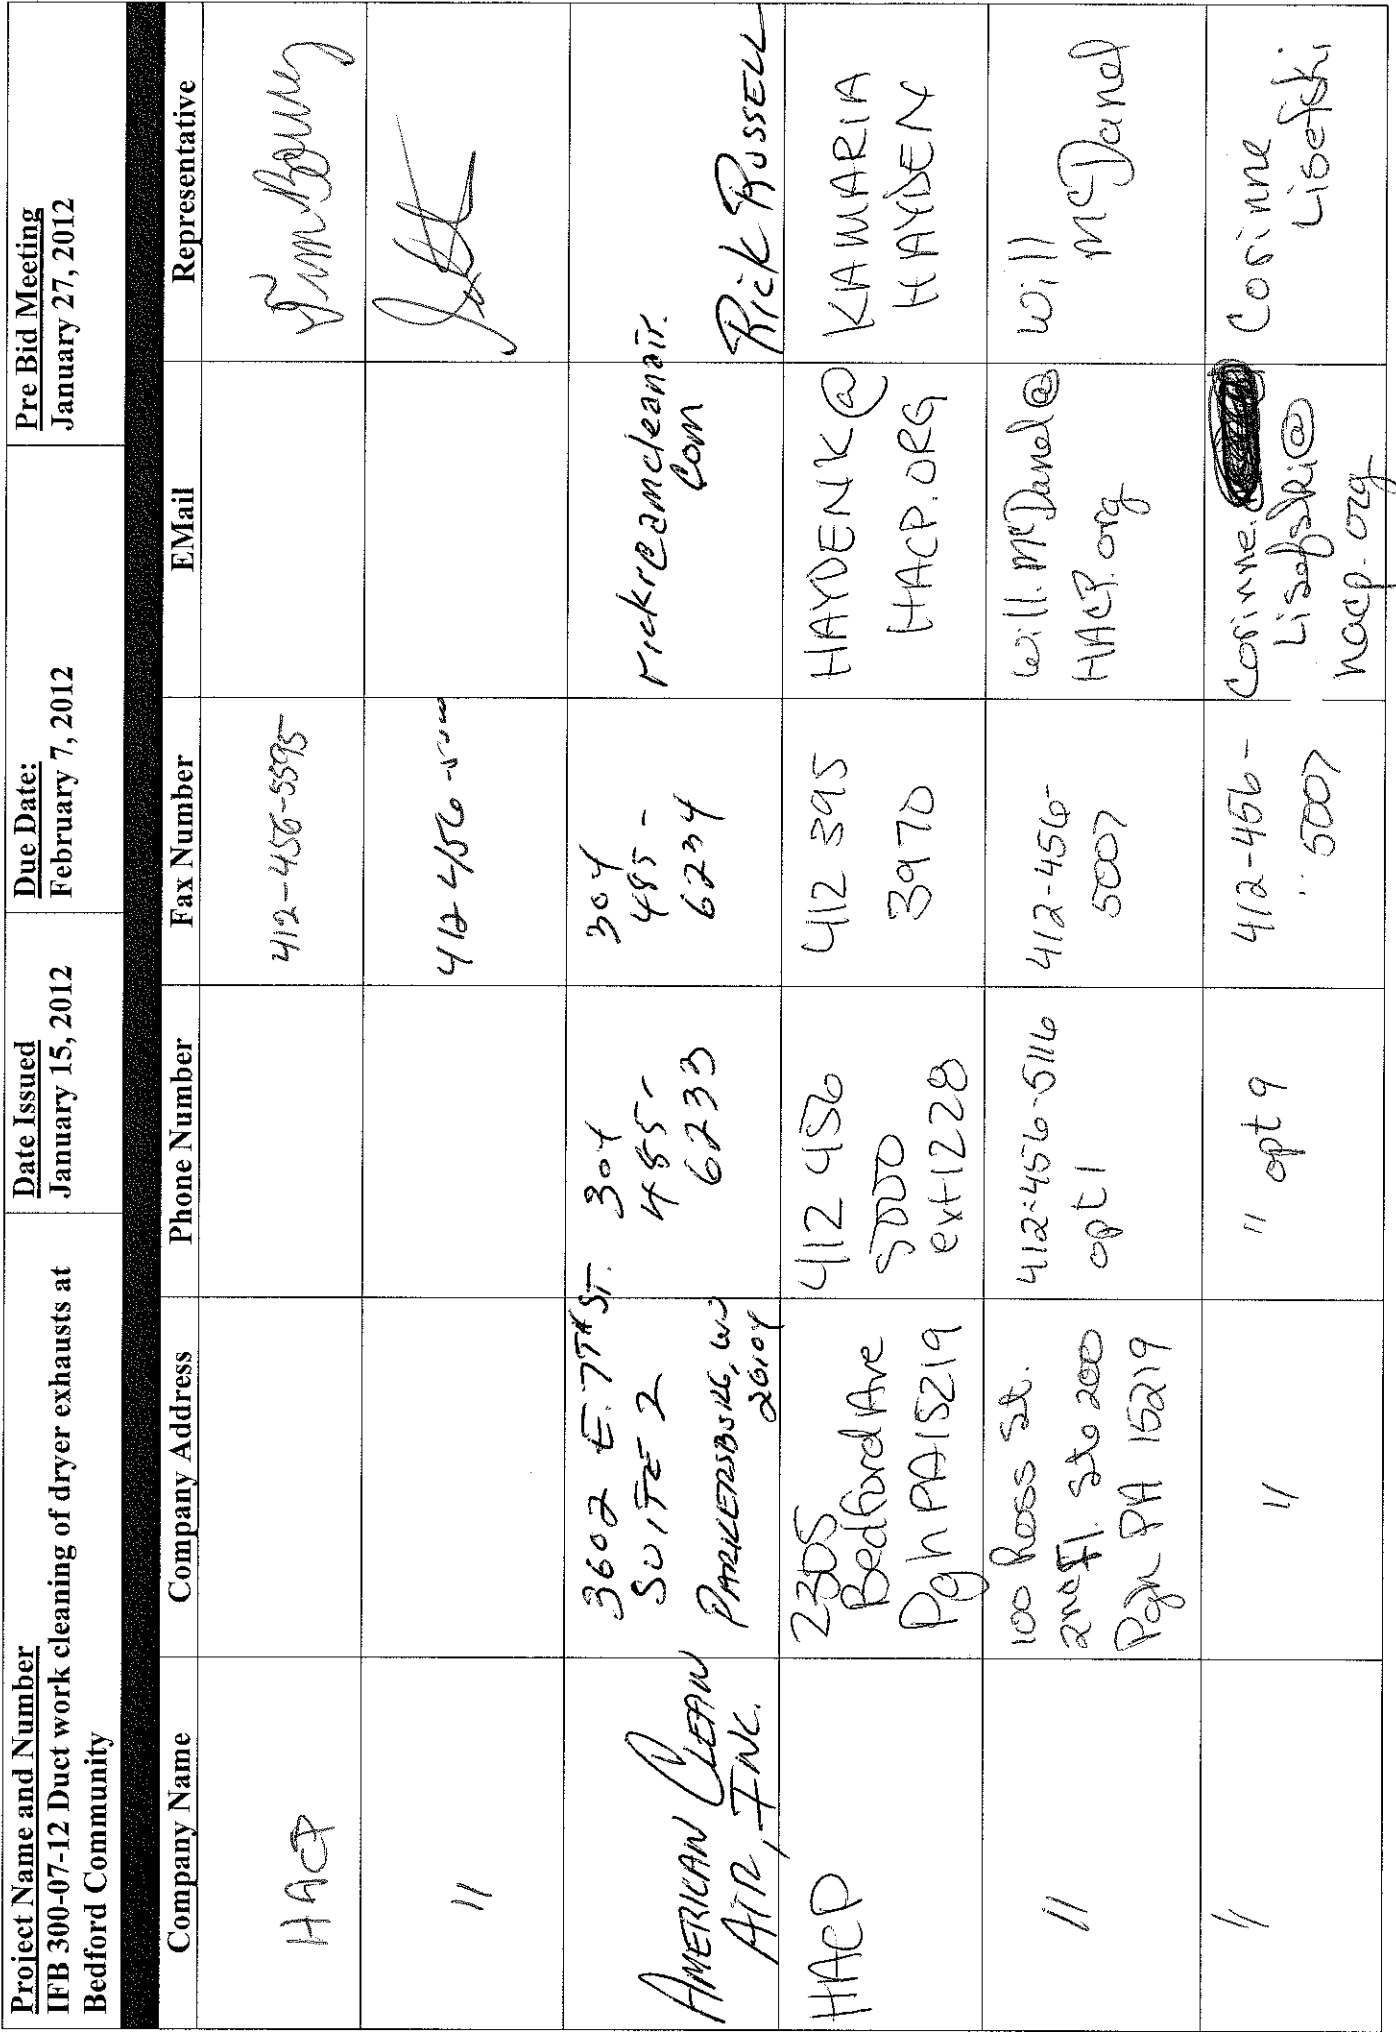 Project Name and Number
IFB 300-07-12 Duct work cleaning of dryer exhausts at
Bedford Community
Date Issued
January 15, 2012
Due Date:
February 7, 2012
Pre Bid Meeting
January 27, 2012
Company Name
Company Address
Phone Number
Fax Number
EMail
Representative
HACP
412-456-5595
"
412 456
AMERICAN CLEAN
AIR, INC.
3602 E. 7TH ST.
SUITE 2
PARKERSBURG, WV
26104
304
485-
6233
304
485-
6234
rickr@amcleanair.
com
Rick RUSSELL
HACP
2305
Bedford Ave
Pgh PA 15219
412 456
5000
ext 1228
412 395
3970
HAYDENK@
HACP.ORG
KAMARIA
HAYDEN
"
100 Ross St.
2nd Fl. Ste 200
Pgh PA 15219
412-456-5116
opt 1
412-456-
5007
Will.McDanel@
HACP.org
Will
McDanel
"
"
" opt 9
412-456-
5007
Corinne.
Lisefski@
hacp.org
Corinne
Lisefski